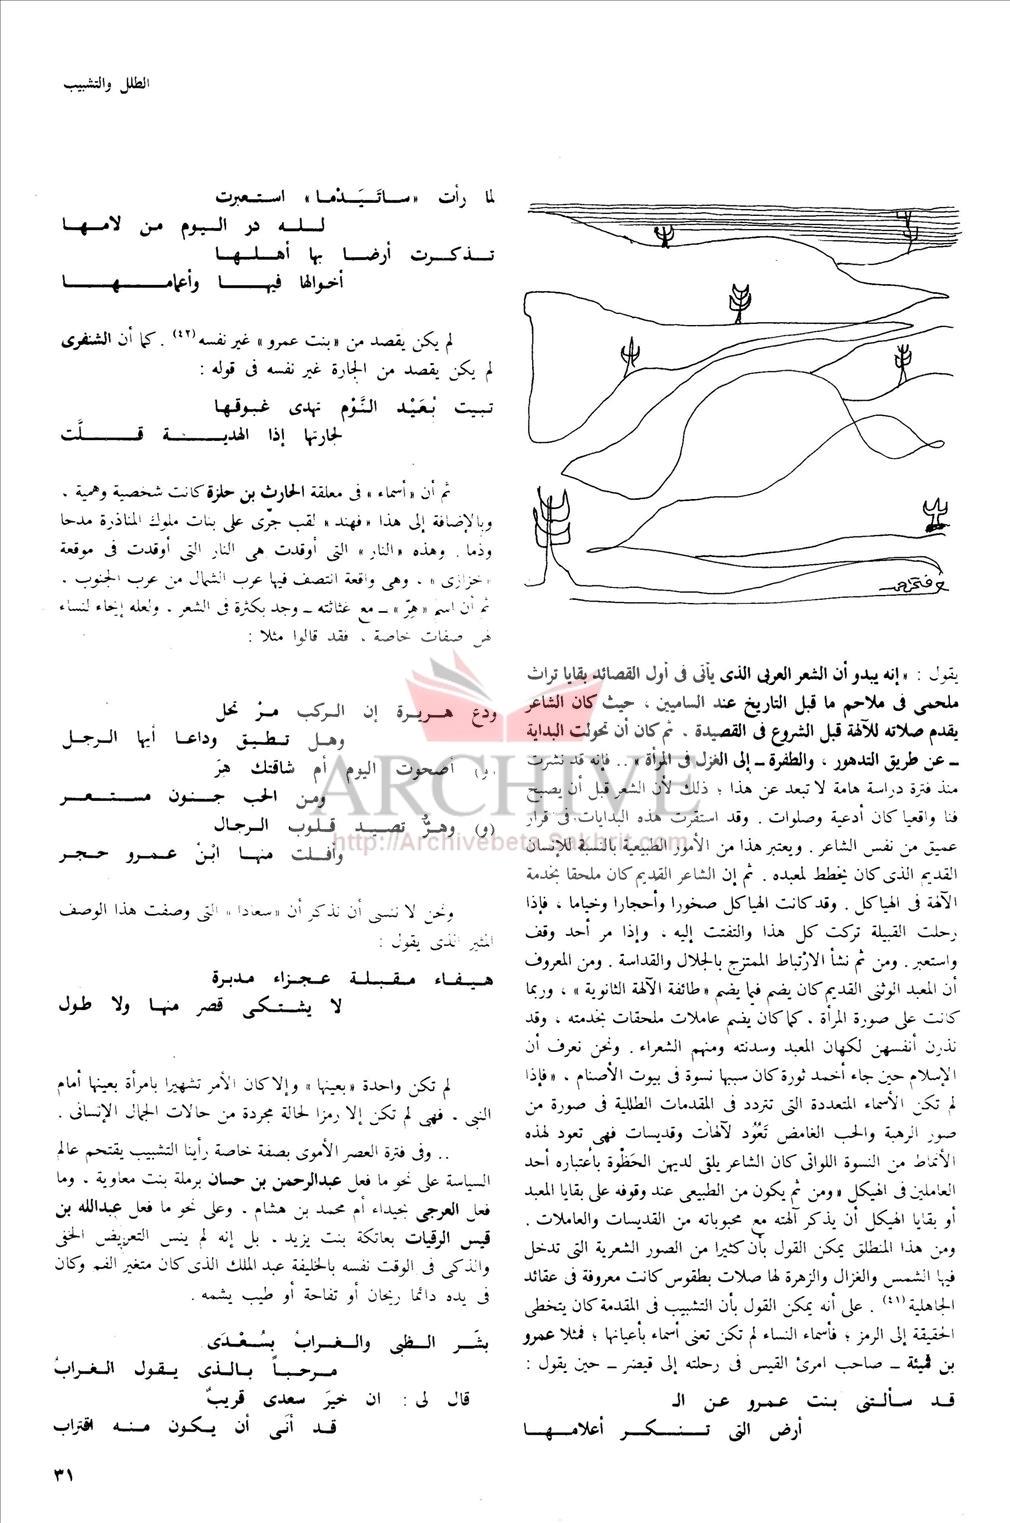 الطلل والتشبيب
يقول : « إنه يبدو أن الشعر العربى الذى يأتى فى أول القصائد بقايا تراث
ملحمى فى ملاحم ما قبل التاريخ عند الساميين ، حيث كان الشاعر
يقدم صلاته للآلهة قبل الشروع فى القصيدة . ثم كان أن تحولت البداية
ــ عن طريق التدهور ، والطفرة ــ إلى الغزل فى المرأة » .. فإنه قد نشرت
منذ فترة دراسة هامة لا تبعد عن هذا ؛ ذلك لأن الشعر قبل أن يصبح
فنا واقعيا كان أدعية وصلوات . وقد استقرت هذه البدايات فى قرار
عميق من نفس الشاعر . ويعتبر هذا من الأمور الطبيعية بالنسبة للإنسان
القديم الذى كان يخطط لمعبده . ثم إن الشاعر القديم كان ملحقا بخدمة
الآلهة فى الهياكل . وقد كانت الهياكل صخورا وأحجارا وخياما ، فإذا
رحلت القبيلة تركت كل هذا والتفتت إليه ، وإذا مر أحد وقف
واستعبر . ومن ثم نشأ الارتباط الممتزج بالجلال والقداسة . ومن المعروف
أن المعبد الوثنى القديم كان يضم فيما يضم « طائفة الآلهة الثانوية » ، وربما
كانت على صورة المرأة . كما كان يضم عاملات ملحقات بخدمته ، وقد
نذرن أنفسهن لكهان المعبد وسدنته ومنهم الشعراء . ونحن نعرف أن
الإسلام حين جاء أخمد ثورة كان سببها نسوة فى بيوت الأصنام . « فإذا
لم تكن الأسماء المتعددة التى تتردد فى المقدمات الطللية فى صورة من
صور الرهبة والحب الغامض تَعُوُد لآلهات وقديسات فهى تعود لهذه
الأنماط من النسوة اللواتى كان الشاعر يلقى لديهن الحَظْوة باعتباره أحد
العاملين فى الهيكل « ومن ثم يكون من الطبيعى عند وقوفه على بقايا المعبد
أو بقايا الهيكل أن يذكر آلهته مع محبوباته من القديسات والعاملات .
ومن هذا المنطلق يمكن القول بأن كثيرا من الصور الشعرية التى تدخل
فيها الشمس والغزال والزهرة لها صلات بطقوس كانت معروفة فى عقائد
الجاهلية (٤١) . على أنه يمكن القول بأن التشبيب فى المقدمة كان يتخطى
الحقيقة إلى الرمز ؛ فأسماء النساء لم تكن تعنى أسماء بأعيانها ؛ فمثلا عمرو
بن قميئة ــ صاحب امرئ القيس فى رحلته إلى قيضر ــ حين يقول :
قد سألتنى بنت عمرو عن الـ
أرض التى تنكر أعلامها
لما رأت «ساتَيَدْما» استعبرت
لله در اليوم من لامها
تذكرت أرضا بها أهلها
أخوالها فيها وأعمامها
لم يكن يقصد من « بنت عمرو » غير نفسه (٤٢) . كما أن الشنفرى
لم يكن يقصد من الجارة غير نفسه فى قوله :
تبيت بُعَيْد النَّوْم تهدى غبوقها
لجارتها إذا الهدية قلَّت
ثم أن « أسماء » فى معلقة الحارث بن حلزة كانت شخصية وهمية .
وبالإضافة إلى هذا « فهند » لقب جرى على بنات ملوك المناذرة مدحا
وذما . وهذه « النار » التى أوقدت هى النار التى أوقدت فى موقعة
« خزازى » . وهى واقعة انتصف فيها عرب الشمال من عرب الجنوب .
ثم أن اسم « هِرّ » ــ مع غثاثته ــ وجد بكثرة فى الشعر . ولعله إيحاء لنساء
لهن صفات خاصة ، فقد قالوا مثلا :
ودع هريرة إن الركب مرْ تحل
وهل تطيق وداعا أيها الرجل
(و) أصحوت اليوم أم شاقتك هِرّ
ومن الحب جنون مستعر
(و) وهرٌّ تصيد قلوب الرجال
وأفلت منها ابْنُ عمرو حجر
ونحن لا ننسى أن نذكر أن « سعادا » التى وصفت هذا الوصف
المثير الذى يقول :
هيفاء مقبلة عجزاء مدبرة
لا يشتكى قصر منها ولا طول
لم تكن واحدة « بعينها » وإلا كان الأمر تشهيرا بامرأة بعينها أمام
النبى . فهى لم تكن إلا رمزا لحالة مجردة من حالات الجمال الإنسانى .
.. وفى فترة العصر الأموى بصفة خاصة رأينا التشبيب يقتحم عالم
السياسة على نحو ما فعل عبدالرحمن بن حسان برملة بنت معاوية . وما
فعل العرجى بجيداء أم محمد بن هشام . وعلى نحو ما فعل عبدالله بن
قيس الرقيات بعاتكة بنت يزيد . بل إنه لم ينس التعريض الخفى
والذكى فى الوقت نفسه بالخليفة عبد الملك الذى كان متغير الفم وكان
فى يده دائما ريحان أو تفاحة أو طيب يشمه .
بشّر الظبى والغرابُ بسُعْدَى
مرحباً بالذى يقول الغرابُ
قال لى : ان خيرَ سعدى قريبٌ
قد أنَى أن يكون منه اقتراب
٣١
ARCHIVE
http://Archivebeta.Sakhrit.com